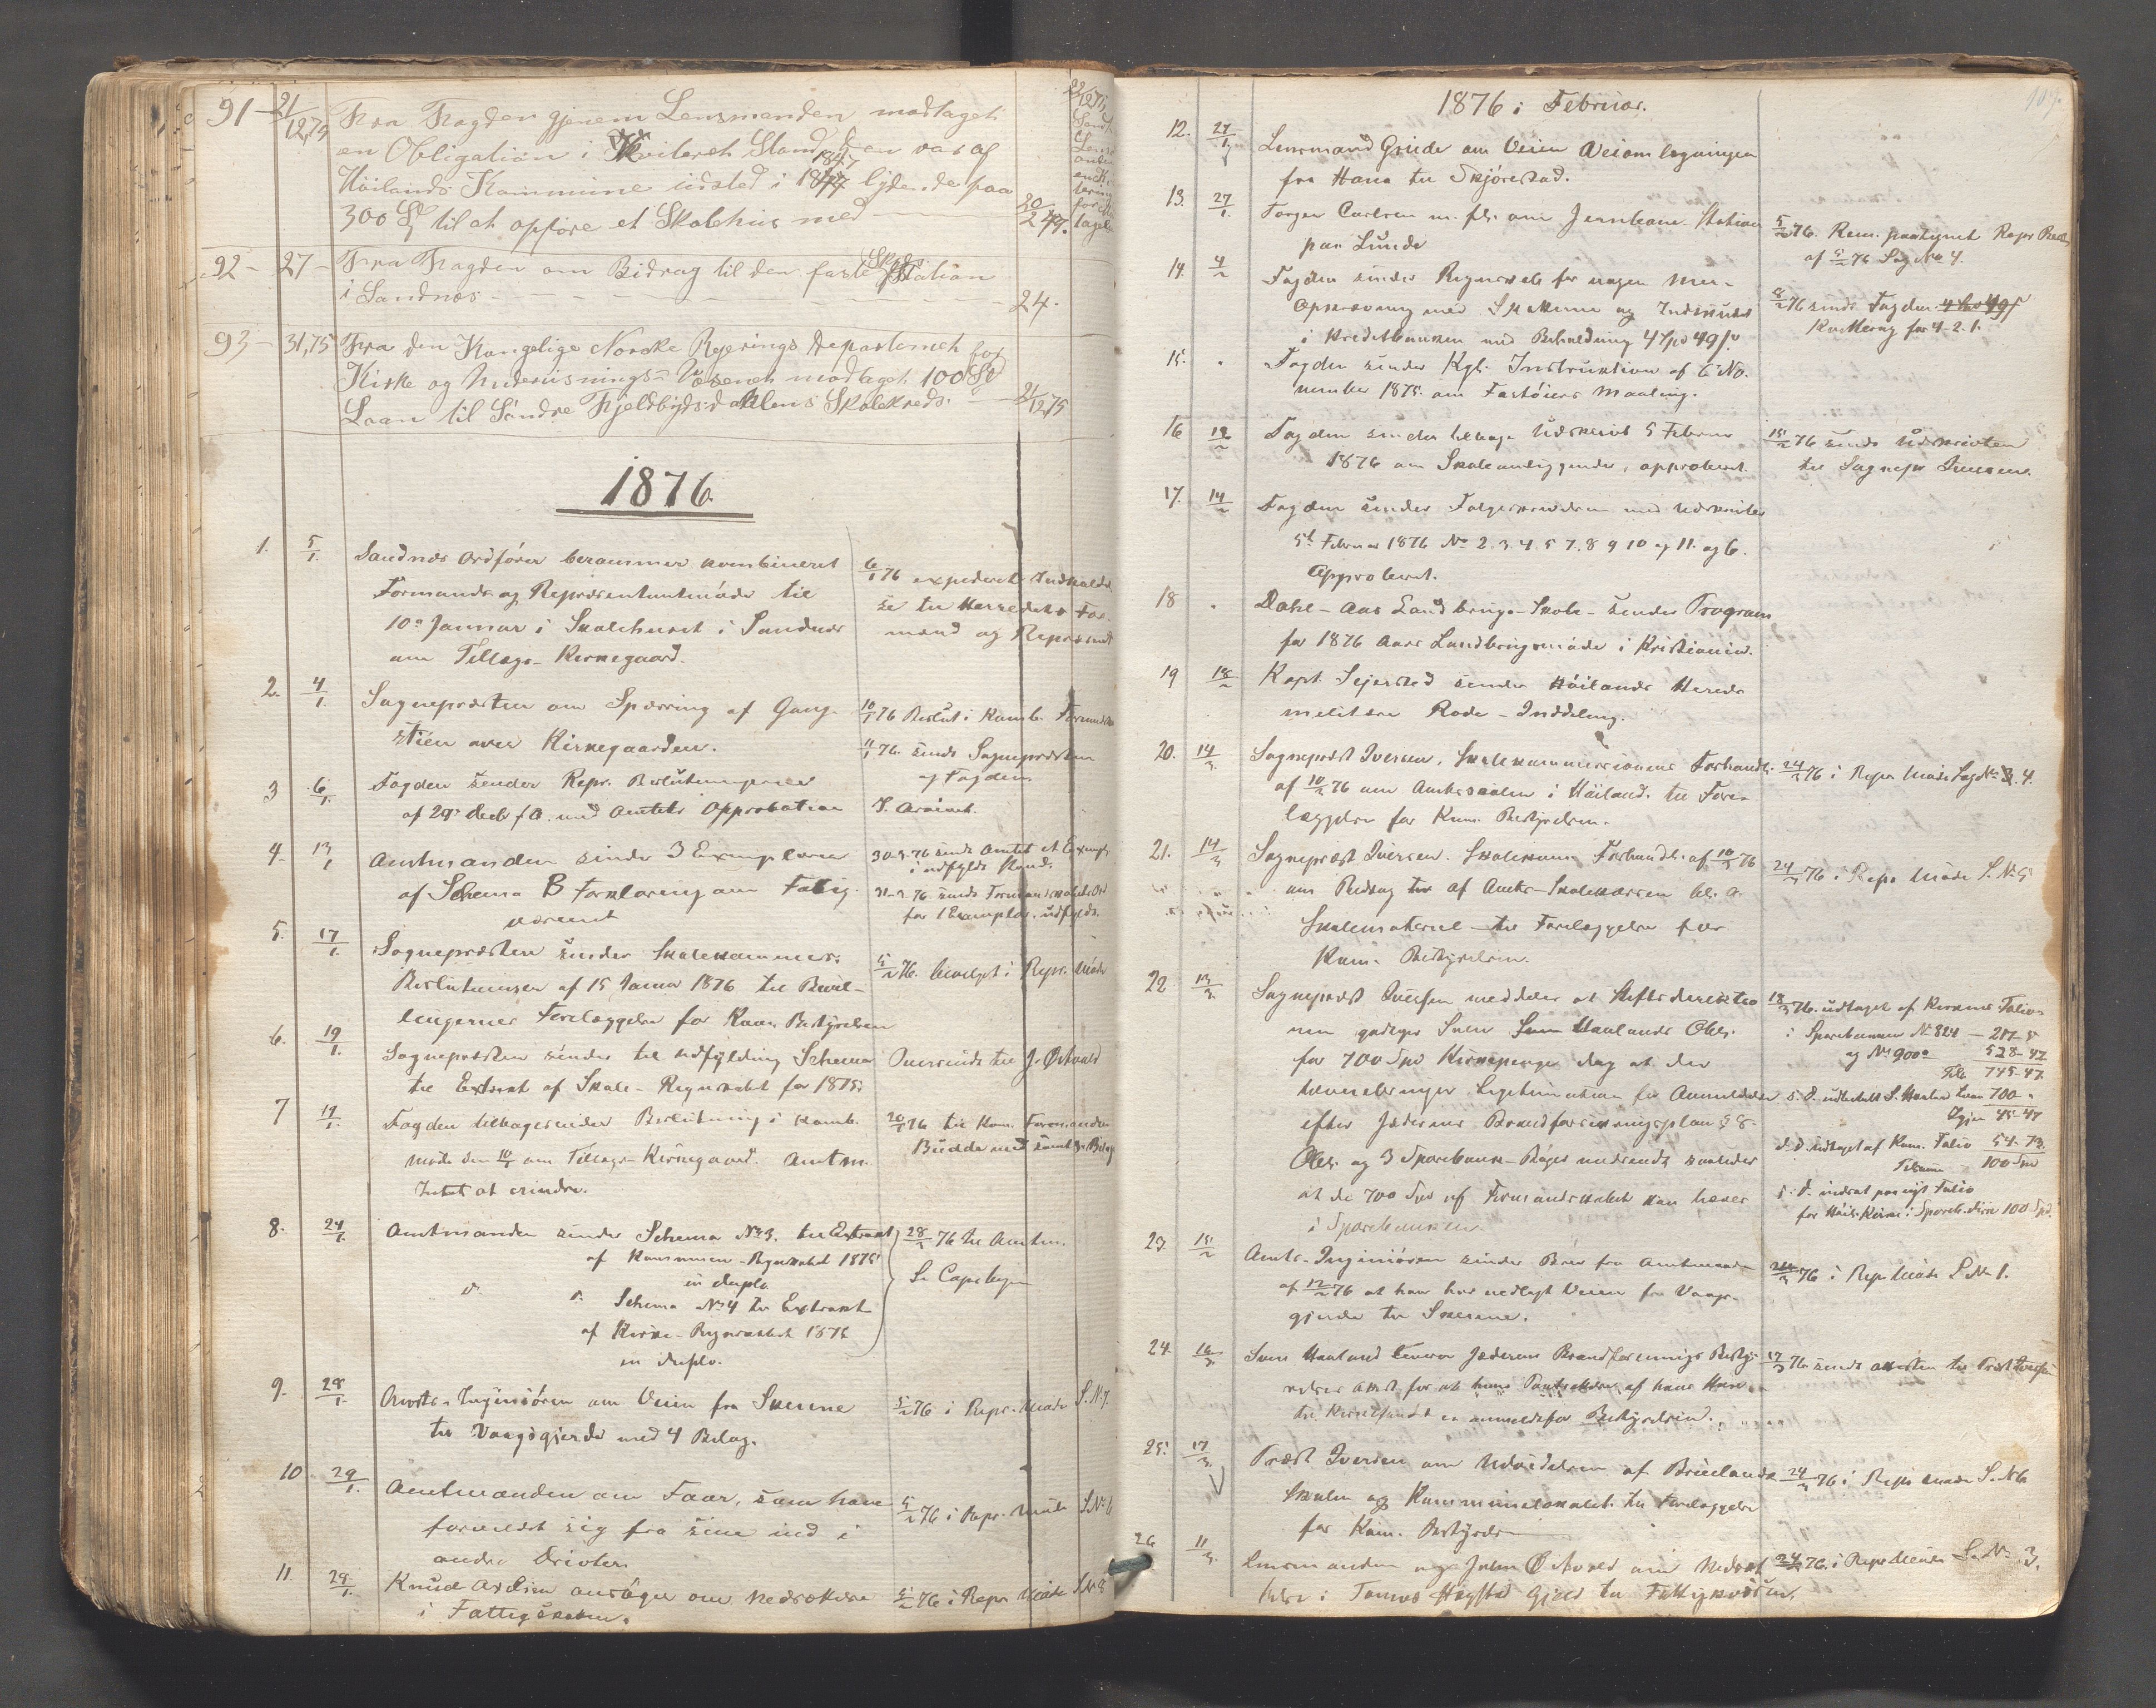 91 - 21/12,75 Fra Fogden gjenem Lensmanden modtaget
en Obligation i Kviteret Stand, den var af
1847
Höilands Kommune udsted i 1847 lydende paa
300 Sp til at opföre et Skolehus med
92 - 27 - Fra Fogden om Bidrag til den faste Skyds Station
i Sandnæs - 24.
93 - 31,75 Fra den Kongelige Norske Regjerings Departement for
Kirke og Undervisnings-Væsenet modtaget 100 Sp
Laan til Söndre Skolekreds. 21/12 75
1876.
1. 5/1. Sandnæs Ordförer berammer kombineret
Formands og Repræsentantmöde til
10de Januar i Skolehuset i Sandnæs
om Tillægs-Kirkegaard.
6/1 76 expederet Indkaldel
se til Herredets For-
mænd og Repræsent
2. 4/1. Sognepræsten om Spærring af Gang-
stien over Kirkegaarden.
10/1 76 Beslut i Komb. Formands
11/1 76. sendt Sognepræsten
og Fogden
3 6/1. Fogden sender Repr. Beslutningerne
af 29 Decbr f.A. med Amtets Approbation
4. 13/1 Amtmanden sender 3 Exemplarer
af Schema B Forklaring om Fattig-
væsenet
30-3-76 sendt Amtet et Exempl
i udfyldt Stand.
for 1 Exemplar. udfyldt.
5. 17/1. Sognepræsten sender Skolekommis.
Beslutninger af 15 Januar 1876 til Bevil-
lingernes Forelæggelse for Kom. Bestyrelsen
5/2 76. bevilget i Repr. Möde
6. 19/1. Sognepræsten sender til Udfylding Schema
til Extract af Skole-Regnskabet for 1875.
Oversendt til J. Østvold
7 19/1. Fogden tilbagesender Beslutning i komb.
Möde den 10/1 om Tillægs-Kirkegaard. Amtm.
Intet at erindre.
20/1 76 til Kom. Formanden
Budde med samtlige Bilag
8. 24/1. Amtmanden sender Schema No 3. til Extract
af Kommune-Regnskabet 1875
in duplo
d. d. Schema No 4 til Extrakt
af Kirke-Regnskabet 1875
in duplo.
28/3 76 til Amtm.
Se Copebogen
9. 28/1. Amts-Ingeniören om Veien fra Skeiene
til Vaagsgjerde med 4 Bilag.
5/2 76 i Repr. Möde S.N. 7.
10 29/1. Amtmanden om Faar, som have
forvildet sig fra sine ind i
andre Drivter.
5/2 76 i Repr. Möde S.No 6
11. 29/1. Knud Axelsen ansöger om Nedsættelse
i Fattigskatten.
5/2 76 i Repr Möde S.No 8
1876 i Februar.
12. 27/1 Lensmand Grude om Veien Veiomlægningen
fra Hana til Skjörestad.
13. 27/1. Torger Carlsen m. fl. om Jernbane-Station
paa Lunde
5/2 76. Rem. paategnet Repr Besl
af 5/2 76 Sag No 4.
14. 4/2 Fogden sender Regnskab for nogen Mer-
Opkrævning med Skatterne og Indskud
i Kreditbanken med Beholdning 4 Spd 49 s.
8/2 76 sendt Fogden
Kvittering for 4-2-1.
15. " Fogden sender Kgl. Instruktion af 6 No-
vember 1875. om Fartöiers Maaling.
16 12/2 Fogden sender tilbage Udskrivt 5 Februar
1876 om Skoleanliggender, approberet.
15/2 76 sendt Udskrivten
til Sognepr Iversen.
17. 14/2 Fogden sender Fölgeskrivelsen med Udskrivter
5te Februar 1876 No 2. 3. 4. 5 7. 8 9 10 og 11. og 6.
Approberet.
18 " Dahl-Aas Landbrugs-Skole-sender Program
for 1876 Aars Landbrugsmöde i Kristiania.
19 18/2 Kapt. Sejersted sender Höilands Hereds
militære Rode-Inddeling.
20. 14/3. Sognepræst Iversen, Skolekommissionens Forhandl:
af 10/3 76 om Amtsskolen i Höiland. til Fore-
læggelse for Kom. Bestyrelsen.
24/3 76 i Repr Möde Sag No 4.
21. 14/3 Sognepræst Iversen. Skolekom. Forhandl. af 10/3 76
om Bidrag til af Amts-Skolekassen bl. a.
Skolemateriel - til Forelæggelse for
Kom. Bestyrelsen.
24/3 76 i Repr Möde S.No 5
22 13/3. Sognepræst Iversen meddeler at Stiftsdirektio
nen godtager Sven Haalands Obl.
for 700 Spd Kirkepenge dog at der
tilveiebringes Legitimation for Anmeldelse
efter Jæderens Brandforsikringsplan § 8
Obl. og 3 Sparebank-Böger medsendt saaledes
at de 700 Spd af Formandskabet kan hæves
i Sparebanken.
18/3 76. udtaget af Kirkens Folio
i Sparebanken No 824 - 217-5
og No 9000 528-42
Til. 745-47
s. d. udbetalt S. Haaland Laan 700 -
Igjen 45-47
d. d. udtaget af Kom. Folio 54-73
Tilsammen 100 Spd
s. d. indsat paa nyt Folio
for Höil. Kirke i Spareb. disse 100 Spd.
23. 15/2 Amts-Ingeniören sender Brev fra Amtmanden
af 12/2 76 at han har nedlagt Veien fra Vaags-
gjerde til Skeiene.
24/3 76 i Rep. Möde S.No 1.
24. 16/3. Sven Haaland leverer Jæderens Brandforsikrings Besty-
relses Attest for at hans Pantsættelse af hans Huse
til Kirkefondet er anmeldt for Bestyrelsen.
17/3 76 sendt Attesten til Præst Iversen
25. 17/3. Præst Iversen om Udvidelsen af Brueland
Skole og Kommunelokalet til Forelæggelse
for Kom. Bestyrelse
24/3 76 i Repr Möde S.No 6
26 11/3. Lensmanden og John Østvold om Nedsæt
telse i Tönnes Gjeld til Fattigvæsen.
24/3 76. i Repr Möde S.No 3.